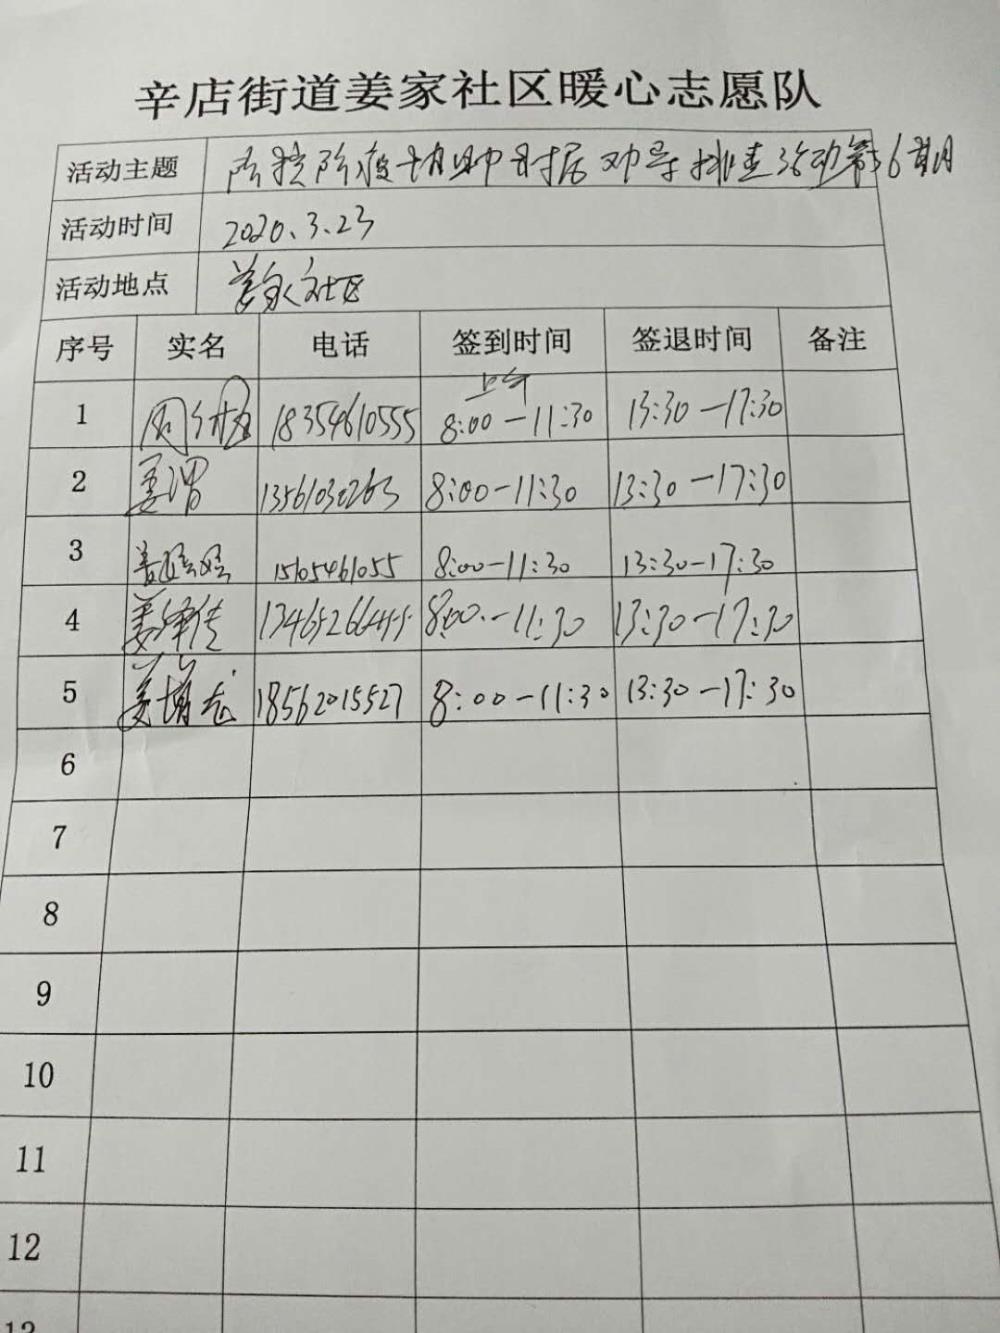 辛店街道姜家社区暖心志愿队
活动主题 排查活动第36期
活动时间 2020.3.23
活动地点 姜家社区
序号 实名 电话 签到时间 签退时间 备注
上午
1 18354610555 8:00-11:30 13:30-17:30
2 姜 13561030263 8:00-11:30 13:30-17:30
3 姜 15105461055 8:00-11:30 13:30-17:30
4 姜泽传 8:00-11:30 13:30-17:30
5 姜增志 18562015527 8:00-11:30 13:30-17:30
6
7
8
9
10
11
12
13